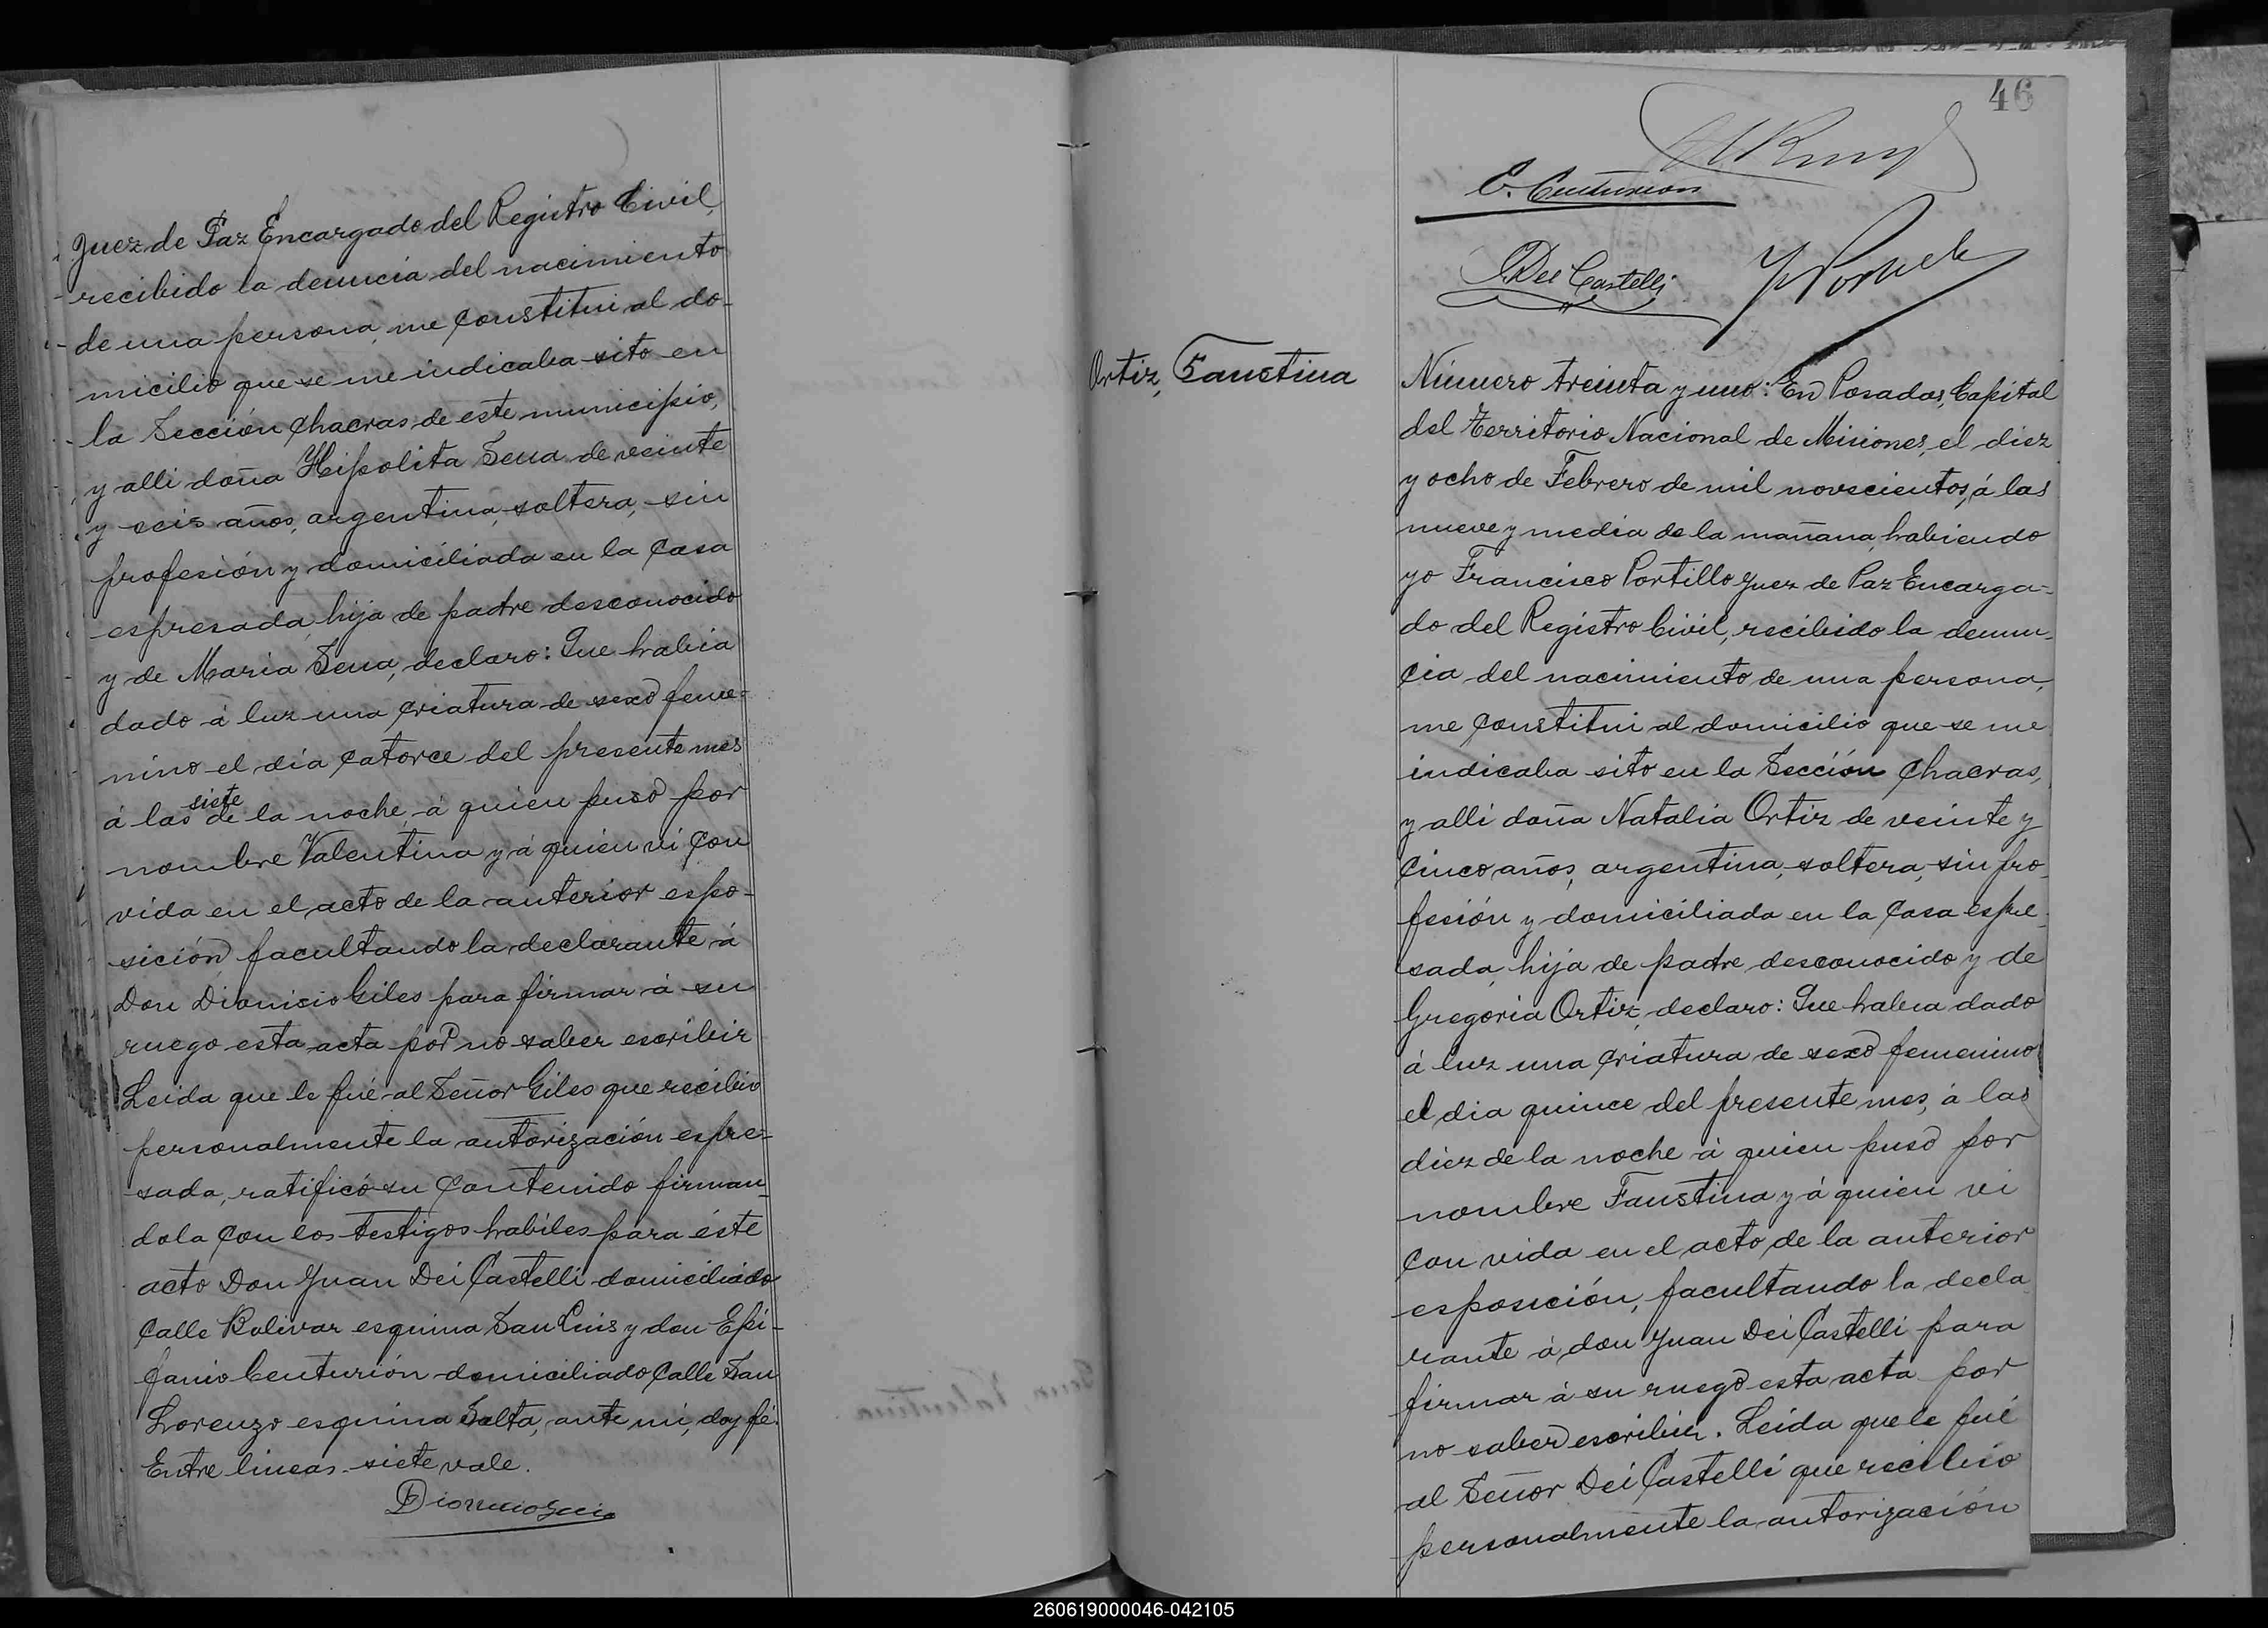 Juez de Paz Encargado del Registro Civil,
recibido la denuncia del nacimiento
de una persona, me constitui al do-
micilio que se me indicaba sito en
la Sección Chacras de este municipio,
y alli doña Hipolita Sena de veinte
y seis años, argentina, soltera, sin
profesión y domiciliada en la casa
espresada, hija de padre desconocido
y de Maria Sena, declaro: Que habia
dado á luz una criatura de sexo feme-
nino el dia catorce del presente mes
á las siete de la noche, á quien puso por
nombre Valentina y á quien vi con
vida en el acto de la anterior espo-
sición facultando la declarante á
Don Dionicio Giles para firmar á su
ruego esta acta por no saber escribir
Leida que le fué al Señor Giles que recibio
personalmente la autorización espre-
sada, ratificó su contenido firman-
dola con los testigos habiles para éste
acto Don Juan Dei Castelli domiciliado
Calle Bolivar esquina San Luis y don Epi-
fanio Centurión domiciliado Calle San
Lorenzo esquina Salta, ante mi, doy fé.
Entre lineas-siete vale.
46
C. Centurion
Dei Castelli
Ortiz, Faustina
Número treinta y uno: En Posadas, Capital
del Territorio Nacional de Misiones, el diez
y ocho de Febrero de mil novecientos, á las
nueve y media de la mañana, habiendo
yo Francisco Portillo Juez de Paz Encarga-
do del Registro Civil, recibido la denun-
cia del nacimiento de una persona,
me constitui al domicilio que se me
indicaba sito en la Sección Chacras,
y alli doña Natalia Ortiz de veinte y
cinco años, argentina, soltera, sin pro-
fesión y domiciliada en la casa espre-
sada, hija de padre desconocido y de
Gregoria Ortiz, declaro: Que habia dado
á luz una criatura de sexo femenino
el dia quince del presente mes, á las
diez de la noche á quien puso por
nombre Faustina y á quien vi
con vida en el acto de la anterior
esposición, facultando la decla
rante á don Juan Dei Castelli para
firmar á su ruego esta acta por
no saber escribir. Leida que le fué
al Señor Dei Castelli que recibio
personalmente la autorización
260619000046-042105